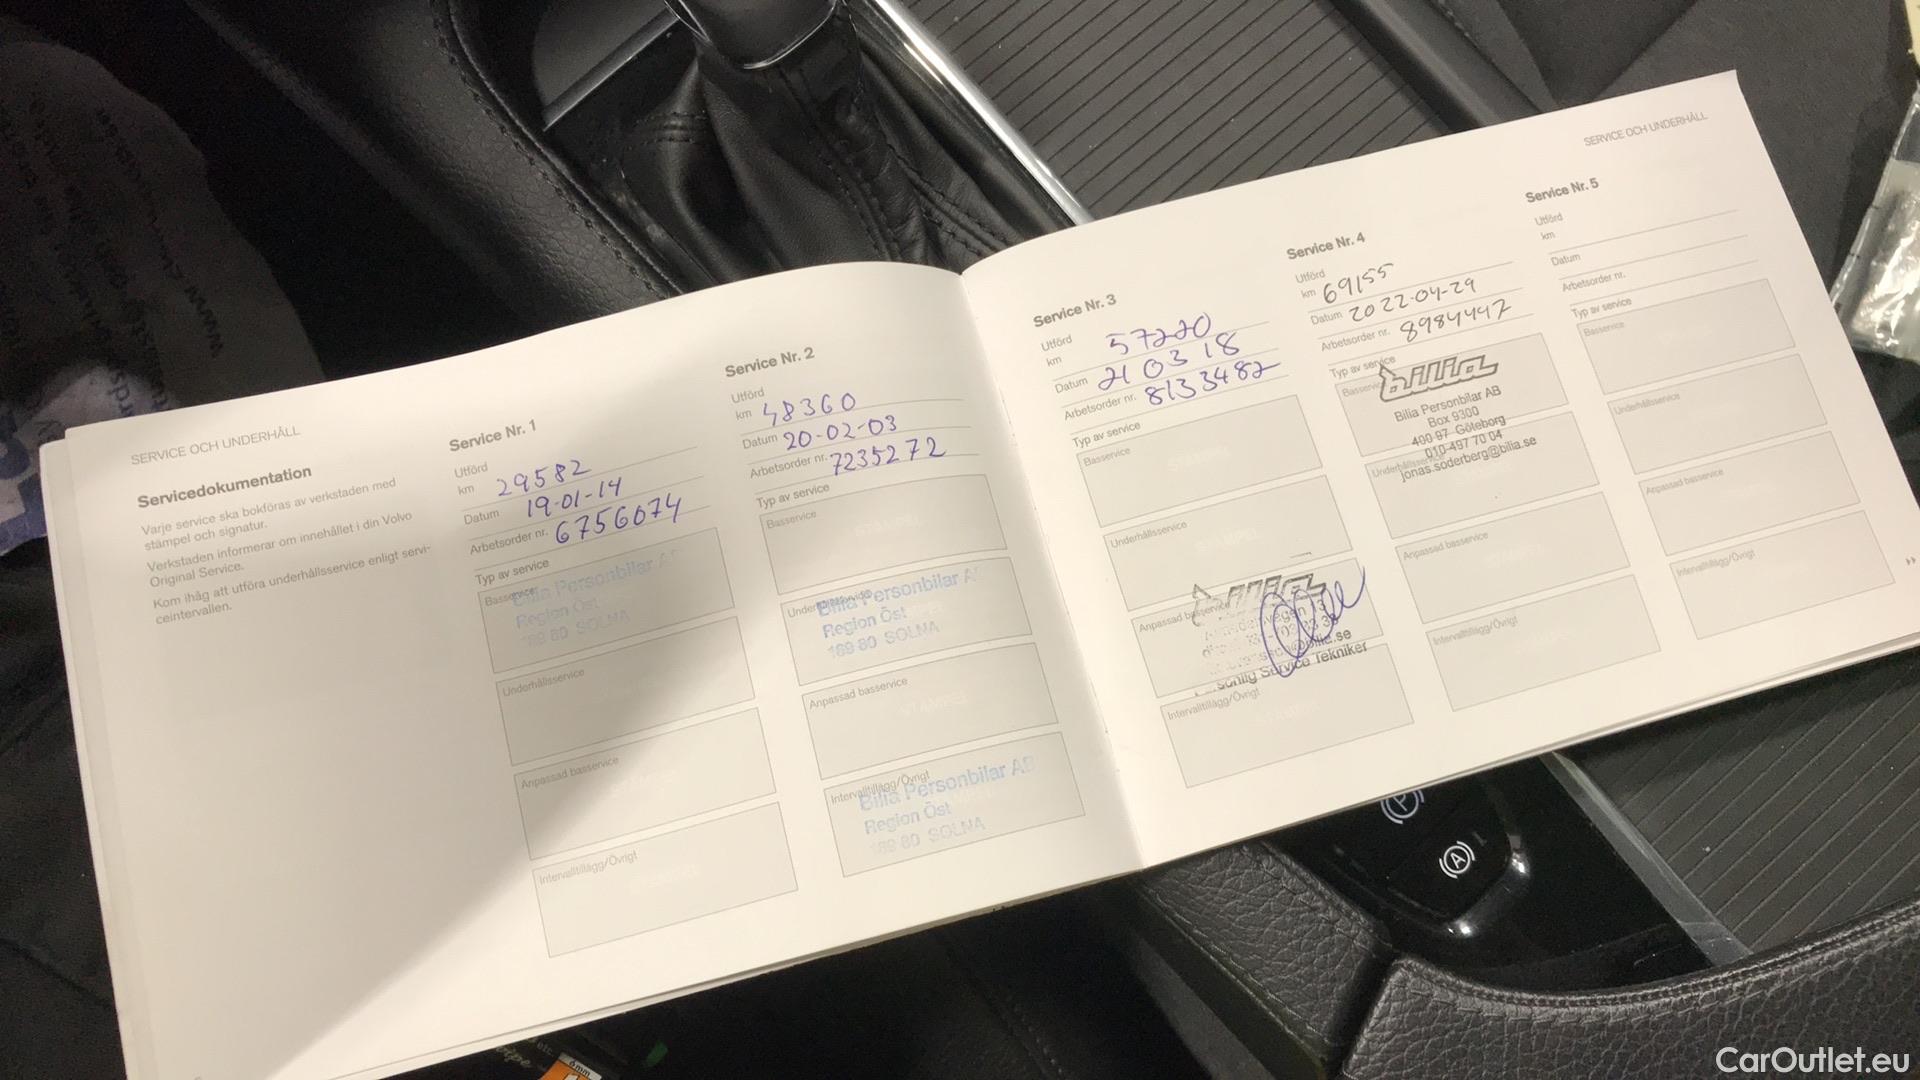 SERVICE OCH UNDERHÅLL
Servicedokumentation
Varje service ska bokföras av verkstaden med
stämpel och signatur.
Verkstaden informerar om innehållet i din Volvo
Original Service.
Kom ihåg att utföra underhållsservice enligt servi-
ceintervallen.
Service Nr. 1
Utförd
km 29582
Datum 19-01-14
Arbetsorder nr. 6756074
Typ av service
Basservice
Bilia Personbilar A
Region Öst
169 80 SOLNA
Underhållsservice
Anpassad basservice
Intervalltillägg/Övrigt
Service Nr. 2
Utförd
km 48360
Datum 20-02-03
Arbetsorder nr. 7235272
Typ av service
Basservice
Underhållsservice
Bilia Personbilar A
Region Öst
169 80 SOLNA
Anpassad basservice
STÄMPEL
Intervalltillägg/Övrigt
Bilia Personbilar AB
Region Öst
169 80 SOLNA
SERVICE OCH UNDERHÅLL
Service Nr. 3
Utförd
km 57220
Datum 21 03 18
Arbetsorder nr. 8133482
Typ av service
Basservice
STÄMPEL
Underhållsservice
STÄMPEL
Anpassad basservice
bilia
Service Tekniker
Intervalltillägg/Övrigt
Service Nr. 4
Utförd
km 69155
Datum 2022-04-29
Arbetsorder nr. 8984447
Typ av service
Basservice
bilia
Bilia Personbilar AB
Box 9300
400 97 Göteborg
010-497 70 04
Underhållsservice
jonas.soderberg@bilia.se
Anpassad basservice
STÄMPEL
Intervalltillägg/Övrigt
Service Nr. 5
Utförd
km
Datum
Arbetsorder nr.
Typ av service
Basservice
Underhållsservice
Anpassad basservice
Intervalltillägg/Övrigt
(P)
(A)
CarOutlet.eu